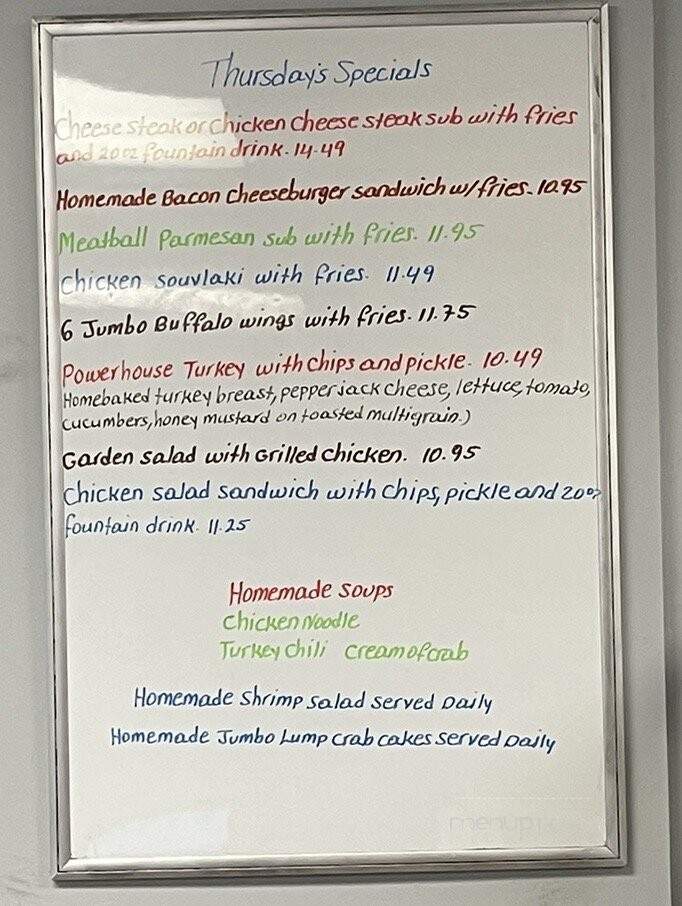 Thursday's Specials
Cheese steak or chicken cheese steak sub with fries
and 20oz fountain drink. 14.49
Homemade Bacon cheeseburger sandwich w/fries. 10.95
Meatball Parmesan sub with fries. 11.95
Chicken souvlaki with fries. 11.49
6 Jumbo Buffalo wings with fries. 11.75
Powerhouse Turkey with chips and pickle. 10.49
Homebaked turkey breast, pepperjack cheese, lettuce, tomato,
cucumbers, honey mustard on toasted multigrain.)
Garden salad with Grilled chicken. 10.95
Chicken salad sandwich with chips, pickle and 20oz
fountain drink. 11.25
Homemade soups
Chicken Noodle
Turkey chili cream of crab
Homemade Shrimp salad served Daily
Homemade Jumbo Lump crab cakes served Daily